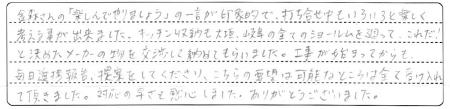 金森さんの「楽しんでやりましょう」の一言が印象的で、打ち合せ中もいろいろと楽しく
考える事が出来ました。キッチン収納も大垣、岐阜の全てのショールームを廻って、これだ!
と決めたメーカーの物を交渉して納めてもらいました。工事が始まってからも
毎日進捗報告、提案をしてくださり、こちらの要望は可能なところは全て受け入れ
て頂きました。対応の早さも感心しました。ありがとうございました。